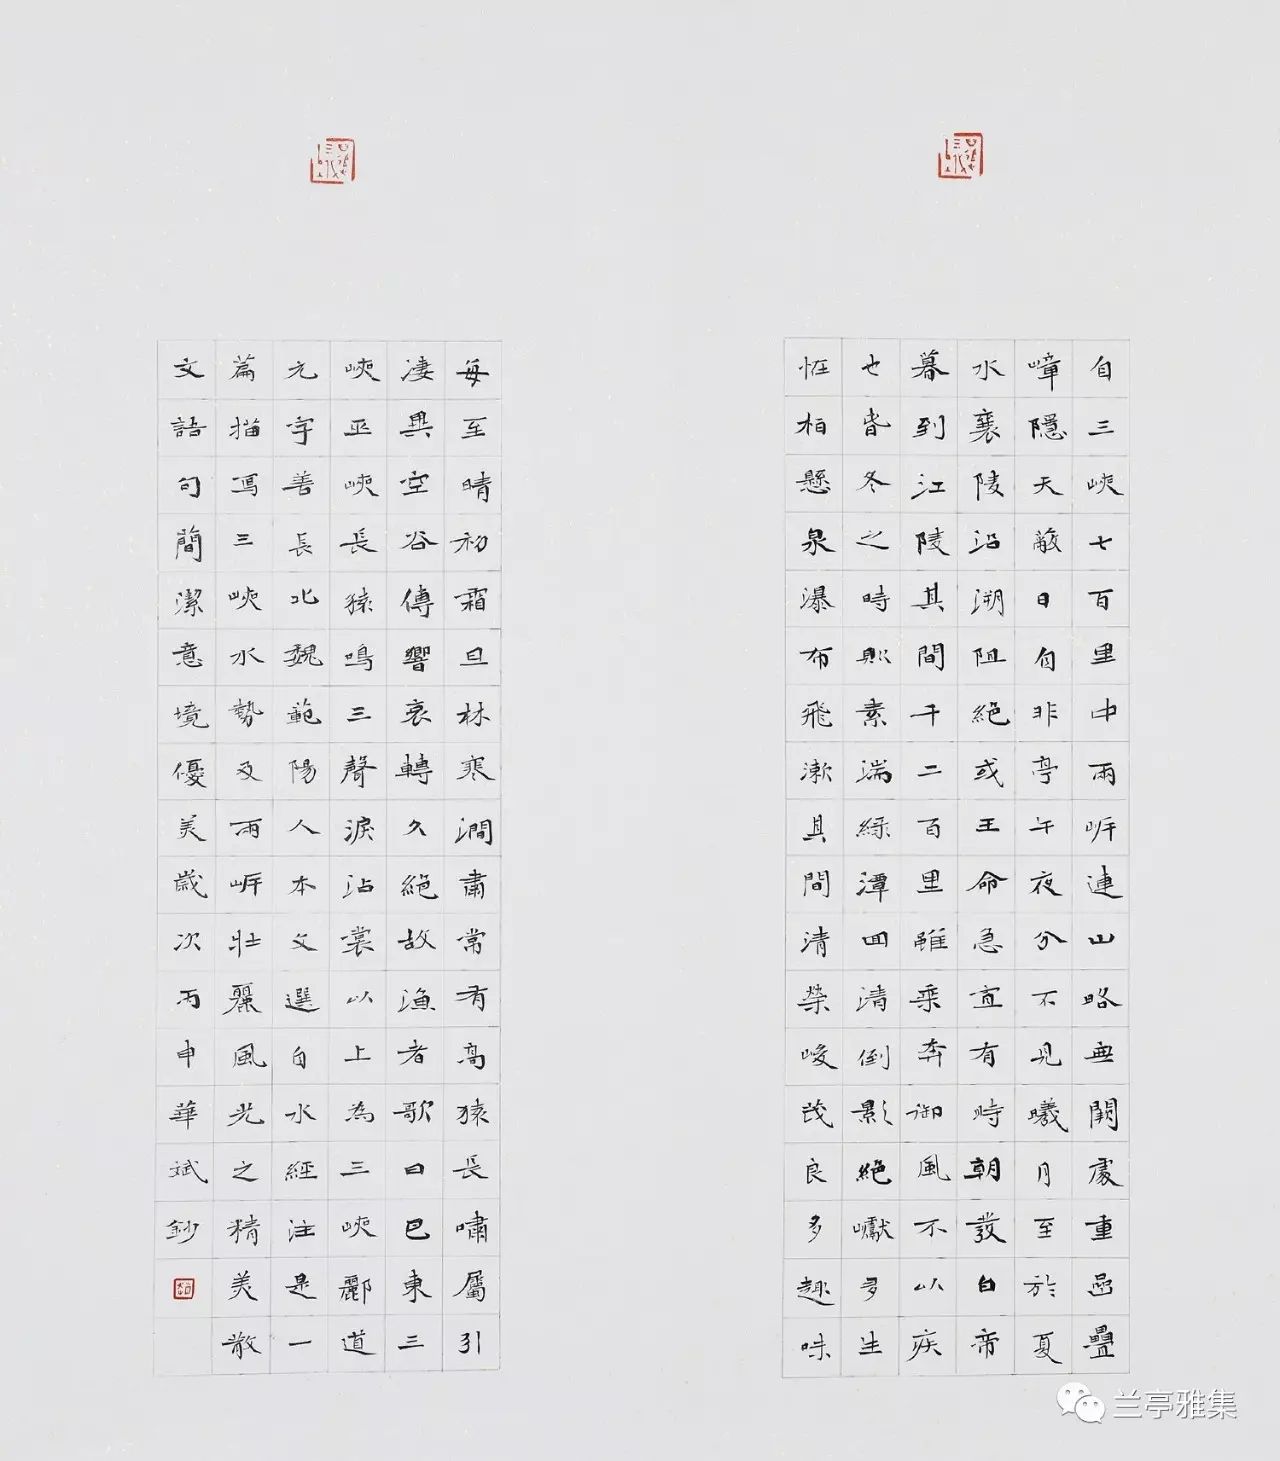 自三峽七百里中兩岸連山略無闕處重嵒疊
嶂隱天蔽日自非亭午夜分不見曦月至於夏
水襄陵沿溯阻絕或王命急宣有時朝發白帝
暮到江陵其間千二百里雖乘奔御風不以疾
也春冬之時則素湍綠潭回清倒影絕巘多生
怪柏懸泉瀑布飛漱其間清榮峻茂良多趣味
每至晴初霜旦林寒澗肅常有高猿長嘯屬引
淒異空谷傳響哀轉久絕故漁者歌曰巴東三
峽巫峽長猿鳴三聲淚沾裳以上為三峽酈道
元字善長北魏範陽人本文選自水經注是一
篇描寫三峽水勢及兩岸壯麗風光之精美散
文語句簡潔意境優美歲次丙申華斌鈔
兰亭雅集